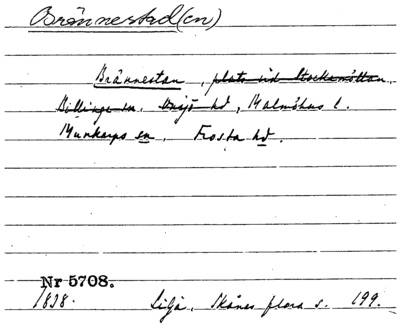 Brännestad(en)
Brännestan, plats vid Stockamöllan,
Billinge sn. Onsjö hd, Malmöhus l.
Munkarps sn, Frosta hd.
Nr 5708.
1838. Lilja, Skånes flora s. 199.